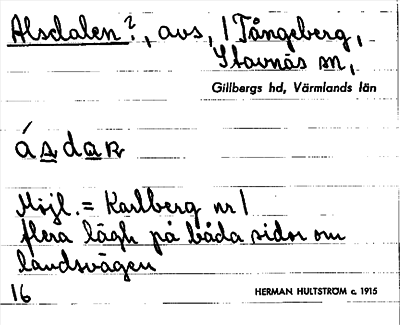 Alsdalen?, avs, i Tångeberg,
Stavnäs sn,
Gillbergs hd, Värmlands län
ásdaʀ
Möjl. = Karlberg nr 1
flera lägh på båda sidor om
landsvägen
16 HERMAN HULTSTRÖM c. 1915